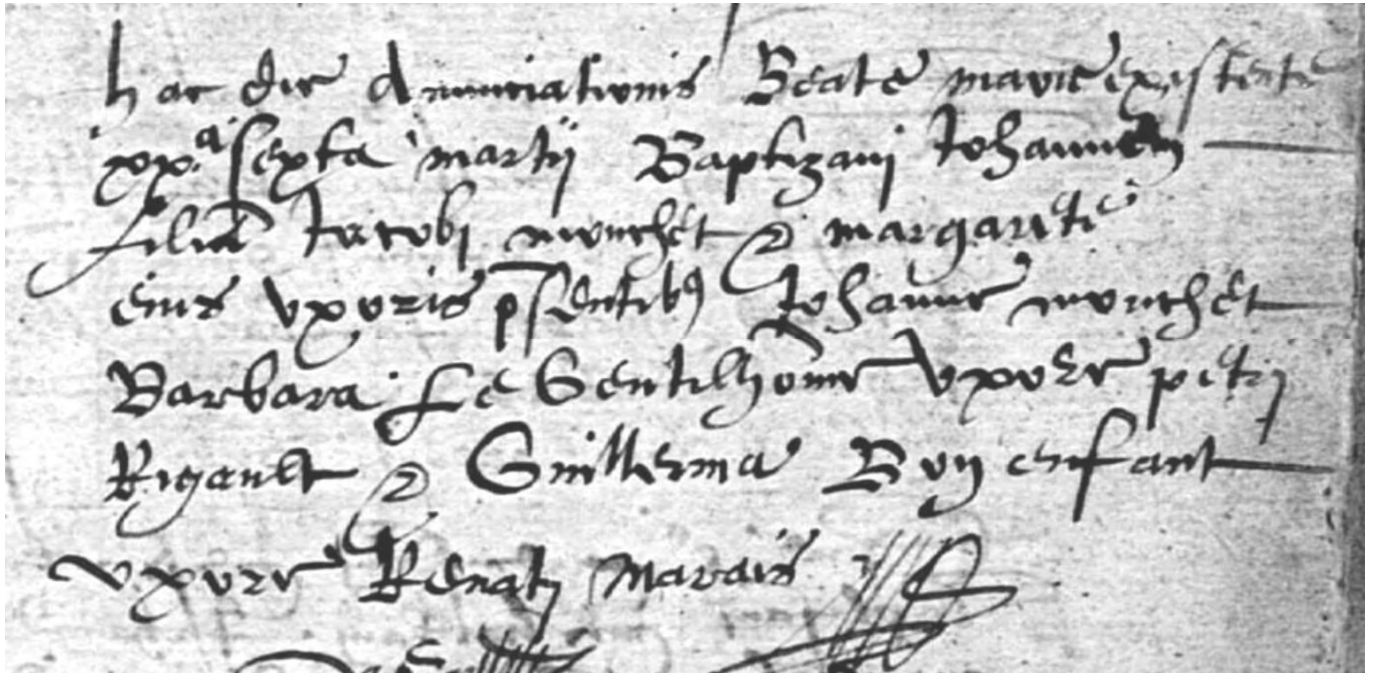 hac die Anunciationis Beate marie existente
xx.a sexta martij Baptizavi Johannem
filiu Jacobi mouchet & margarete
eius uxoris psentibus Johanne mouchet
Barbara Le Gentilhome uxore petri
Rigault & Guillerma Bon enfant
uxore Renati Marais